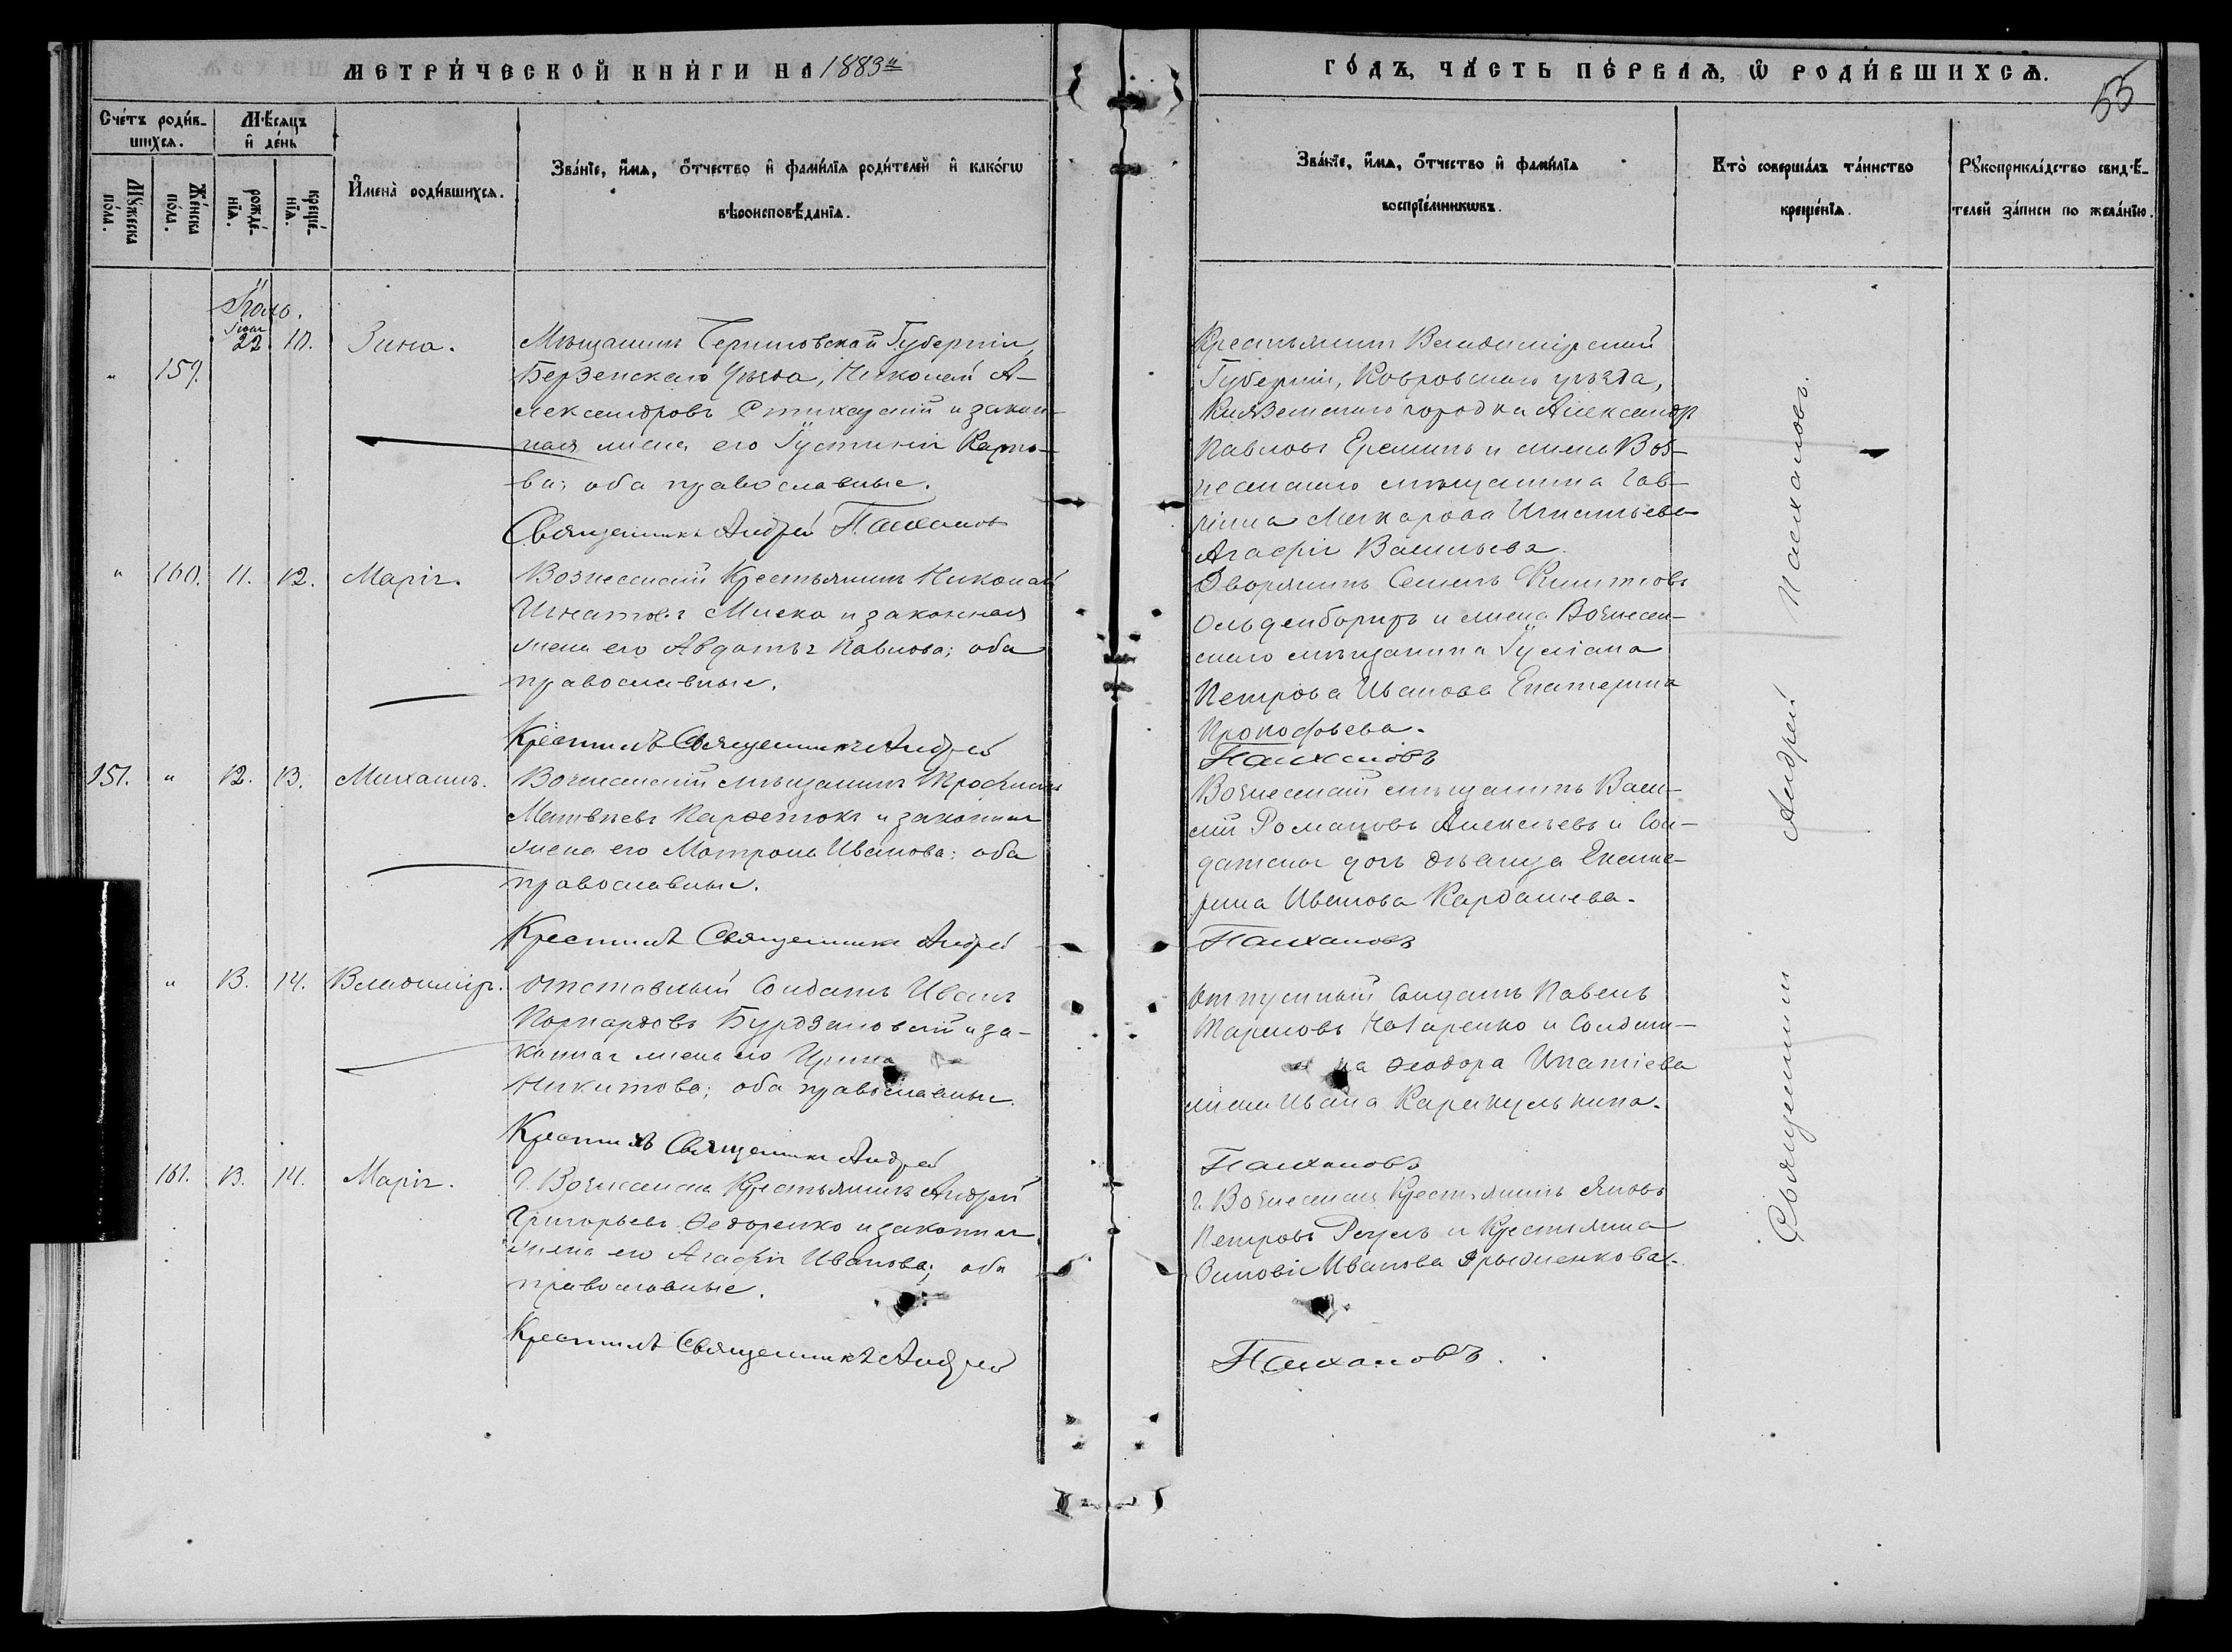 МЕТРИ́ЧЕСКОЙ КНИ́ГИ НА 1883й
ГО́ДЪ, ЧА́СТЬ ПЕ́РВАѦ, Ѡ҆ РОДИ́ВШИХСѦ.
55
Сче́тъ роди́в-
шихсѧ.
Мѣ́сяцъ
и҆ де́нь
Мꙋ́жеска
по́ла.
Же́нска
по́ла.
рожде́-
нїѧ.
креще́-
нїѧ.
И҆мена̀ роди́вшихсѧ.
Зва́нїе, и҆́мѧ, ѻ҆́тчество и҆ фамѝлїѧ роди́телей и҆ како́гѡ
вѣроисповѣ́данїѧ.
Зва́нїе, и҆́мѧ, ѻ҆́тчество и҆ фами́лїѧ
воспрїе́мникѡвъ.
Кто̀ соверша́лъ та́инство
креще́нїѧ.
Рꙋкоприкла́дство свидѣ́-
телей за́писи по жела́нїю.
Іюль.
" 159. 22 10. Зина. Мѣщанинъ Черниговской Губерніи,
Березенскаго уѣзда, Николай А-
лександровъ и закон-
ная жена его Іустинія Карпо-
ва; оба православные.
Священникъ Андрей Палхановъ
Крестьянинъ Владимірской
Губерніи, Ковровскаго уѣзда,
городка Александръ
Павловъ Ереминъ и жена Воз-
несенскаго мѣщанина Гав-
ріила Макарова Игнатьева
Агафія Васильева.
" 160. 11. 12. Марія. Вознесенскій Крестьянинъ Николай
Игнатовъ и законная
жена его Авдотья Павлова; оба
православные.
Крестилъ Священникъ Андрей
Дворянинъ Семенъ Филиповъ
и жена Вознесен-
скаго мѣщанина Іуліана
Петрова Иванова Екатерина
Прокофьева.
Палхановъ
151. " 12. 13. Михаилъ. Вознесенскій мѣщанинъ Трофимъ
Матвѣевъ и законная
жена его Матрона Иванова; оба
православные.
Крестилъ Священникъ Андрей
Вознесенскій мѣщанинъ Васи-
лій Романовъ Алексѣевъ и Сол-
датская дочь дѣвица Екате-
рина Иванова Кардашева.
Палхановъ
" 13. 14. Владиміръ. Отставный Солдатъ Иванъ
и за-
конная жена его Ирина
Никитова; оба православные.
Крестилъ Священникъ Андрей
Отпускный Солдатъ Павелъ
Назаренко и Солдат-
Ѳеодора Ипатіева
жена Ивана
Палхановъ
161. 13. 14. Марія. г. Вознесенска Крестьянинъ Андрей
Григорьевъ Ѳедоренко и законная
жена его Агафія Иванова; оба
православные.
Крестилъ Священникъ Андрей
г. Вознесенска Крестьянинъ Яковъ
Петровъ и Крестьянка
Зиновія Иванова
Палхановъ.
Священникъ Андрей Палхановъ.